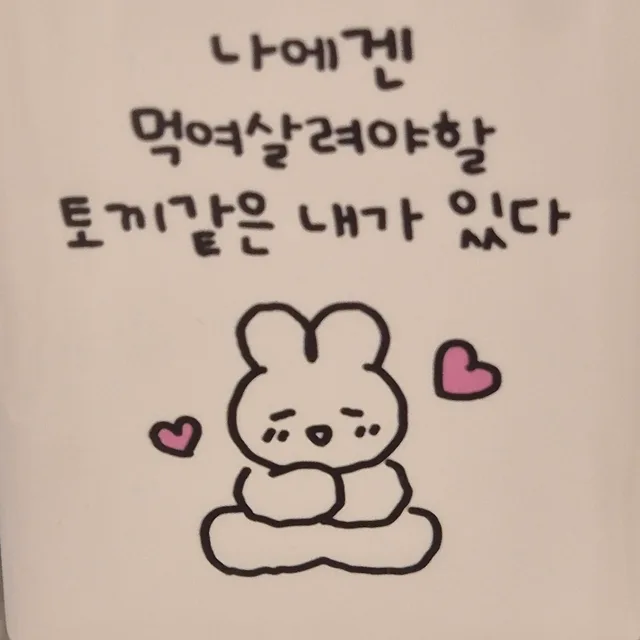 나에겐
먹여살려야할
토끼같은 내가 있다